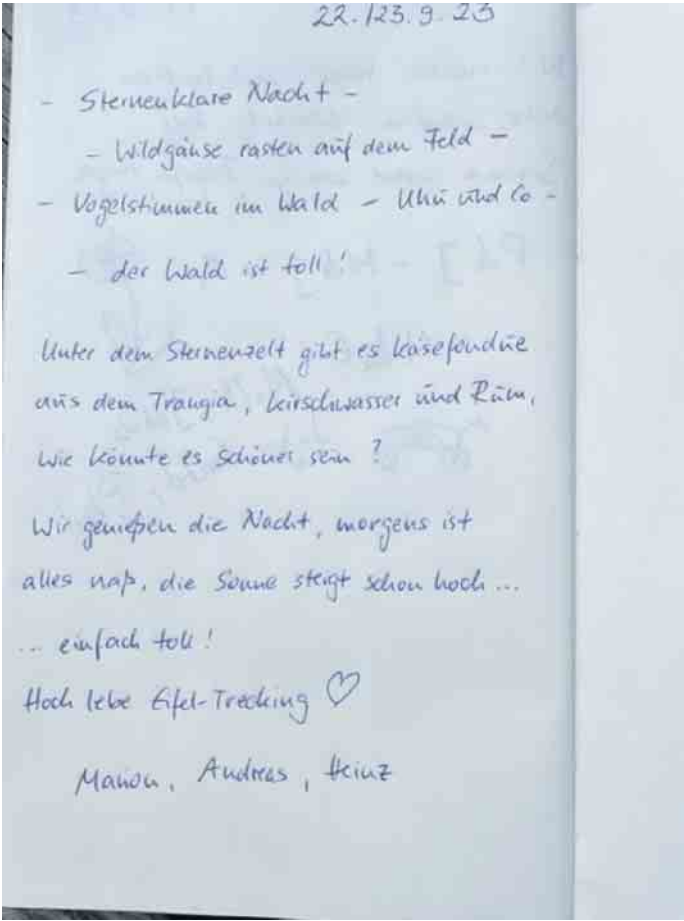 22./23.9.23
- Sternenklare Nacht -
- Wildgänse rasten auf dem Feld -
- Vogelstimmen im Wald - Uhu und Co -
- der Wald ist toll!
Unter dem Sternenzelt gibt es Käsefondue
aus dem Trangia, Kirschwasser und Rum,
wie könnte es schöner sein?
Wir genießen die Nacht, morgens ist
alles naß, die Sonne steigt schon hoch ...
... einfach toll!
Hoch lebe Eifel-Trecking ♡
Marion, Andreas, Heinz